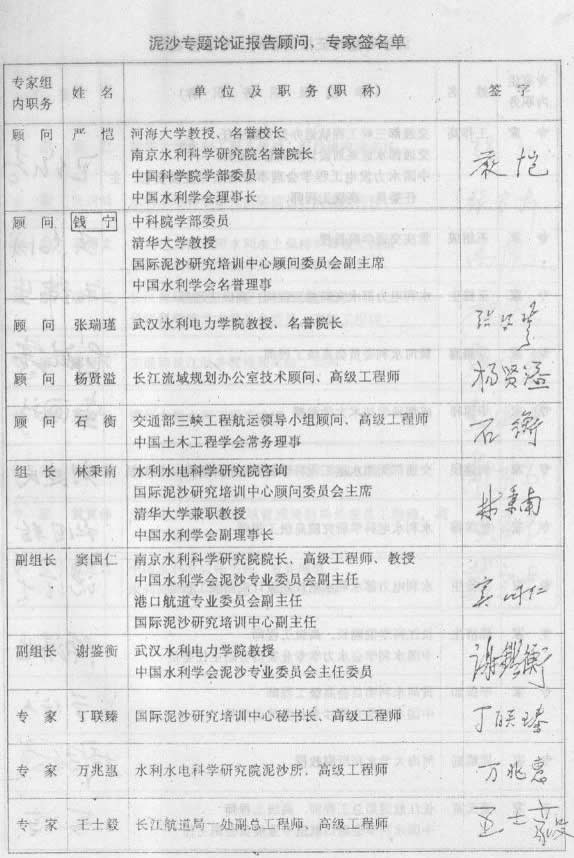 泥沙专题论证报告顾问、专家签名单
专家组内职务 姓 名 单 位 及 职 务(职 称) 签 字
顾 问 严 恺 河海大学教授、名誉校长
南京水利科学研究院名誉院长
中国科学院学部委员
中国水利学会理事长
严恺
顾 问 钱 宁 中科院学部委员
清华大学教授
国际泥沙研究培训中心顾问委员会副主席
中国水利学会名誉理事
顾 问 张瑞瑾 武汉水利电力学院教授、名誉院长 张瑞瑾
顾 问 杨贤溢 长江流域规划办公室技术顾问、高级工程师 杨贤溢
顾 问 石 衡 交通部三峡工程航运领导小组顾问、高级工程师
中国土木工程学会常务理事
石衡
组 长 林秉南 水利水电科学研究院咨询
国际泥沙研究培训中心顾问委员会主席
清华大学兼职教授
中国水利学会副理事长
林秉南
副组长 窦国仁 南京水利科学研究院院长、高级工程师、教授
中国水利学会泥沙专业委员会副主任
港口航道专业委员会副主任
国际泥沙研究培训中心副主任
窦国仁
副组长 谢鉴衡 武汉水利电力学院教授
中国水利学会泥沙专业委员会主任委员
谢鉴衡
专 家 丁联臻 国际泥沙研究培训中心秘书长、高级工程师 丁联臻
专 家 万兆惠 水利水电科学研究院泥沙所、高级工程师 万兆惠
专 家 王士毅 长江航道局一处副总工程师、高级工程师 王士毅